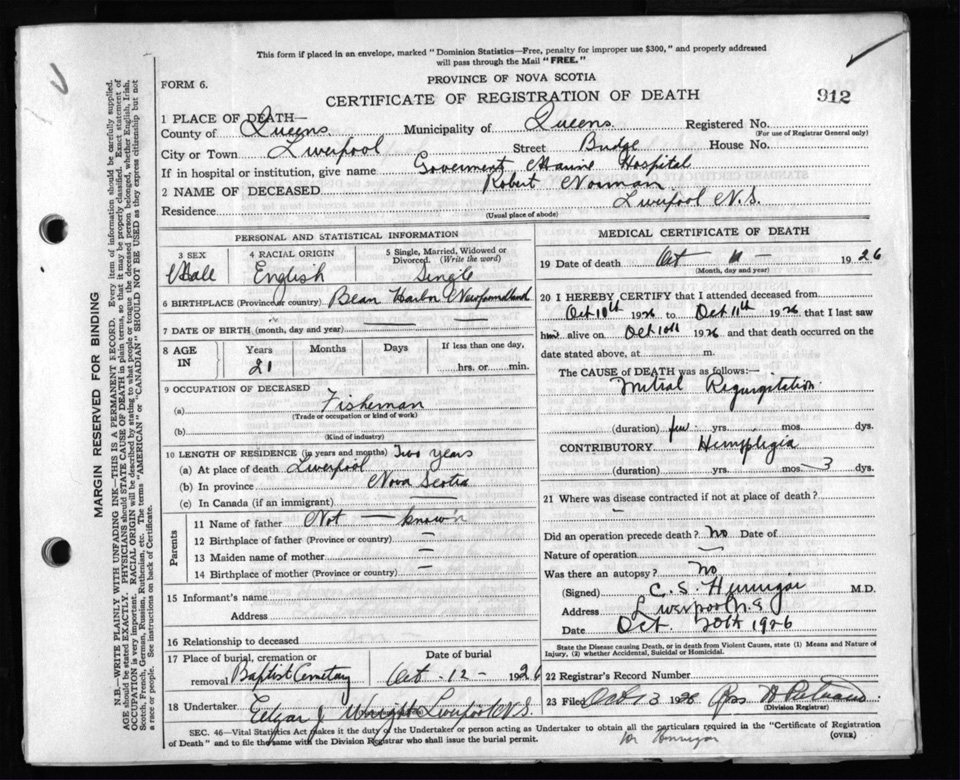 This form if placed in an envelope, marked "Dominion Statistics—Free, penalty for improper use $300," and properly addressed
will pass through the Mail "FREE."
PROVINCE OF NOVA SCOTIA
FORM 6.
CERTIFICATE OF REGISTRATION OF DEATH
912
1 PLACE OF DEATH—
County of Queens Municipality of Queens Registered No.
(For use of Registrar General only)
City or Town Liverpool Street Bridge House No.
If in hospital or institution, give name Goverment Marine Hospital
2 NAME OF DECEASED Robert Norman
Residence Liverpool N.S.
(Usual place of abode)
PERSONAL AND STATISTICAL INFORMATION
3 SEX 4 RACIAL ORIGIN 5 Single, Married, Widowed or Divorced. (Write the word)
Male English Single
6 BIRTHPLACE (Province or country) Bean Harbor Newfoundland
7 DATE OF BIRTH (month, day and year) — —
8 AGE IN Years Months Days If less than one day,
21 hrs. or min.
9 OCCUPATION OF DECEASED
(a) Fisherman
(Trade or occupation or kind of work)
(b)
(Kind of industry)
10 LENGTH OF RESIDENCE (in years and months) Two years
(a) At place of death Liverpool
(b) In province Nova Scotia
(c) In Canada (if an immigrant) —
Parents
11 Name of father Not — known
12 Birthplace of father (Province or country) —
13 Maiden name of mother —
14 Birthplace of mother (Province or country) —
15 Informant's name
Address
16 Relationship to deceased
17 Place of burial, cremation or removal Baptist Cemetary Date of burial Oct - 12 - 1926
18 Undertaker Edgar J Wright Liverpool N.S.
MEDICAL CERTIFICATE OF DEATH
19 Date of death Oct — 11 — 1926
(Month, day and year)
20 I HEREBY CERTIFY that I attended deceased from
Oct 10th 1926 to Oct 11th 1926, that I last saw
him alive on Oct 10th 1926 and that death occurred on the
date stated above, at m.
The CAUSE of DEATH was as follows:—
Mitral Regurgitation
(duration) few yrs. mos. dys.
CONTRIBUTORY Hemiplegia
(duration) yrs. mos. 3 dys.
21 Where was disease contracted if not at place of death?
—
Did an operation precede death? No Date of
Nature of operation —
Was there an autopsy? No
(Signed) C. S. Hennigar M.D.
Address Liverpool N.S
Date Oct. 20th 1926
State the Disease causing Death, or in death from Violent Causes, state (1) Means and Nature of
Injury, (2) whether Accidental, Suicidal or Homicidal.
22 Registrar's Record Number
23 Filed Oct 13 1926
(Division Registrar)
SEC. 46—Vital Statistics Act makes it the duty of the Undertaker or person acting as Undertaker to obtain all the particulars required in the "Certificate of Registration
of Death" and to file the same with the Division Registrar who shall issue the burial permit.
Dr Hennigar
(OVER)
MARGIN RESERVED FOR BINDING
N.B.—WRITE PLAINLY WITH UNFADING INK—THIS IS A PERMANENT RECORD. Every item of information should be carefully supplied.
AGE should be stated EXACTLY. PHYSICIANS should STATE CAUSE OF DEATH in plain terms, so that it may be properly classified. Exact statement of
OCCUPATION is very important. RACIAL ORIGIN will be described by stating to what people or tongue the deceased person belonged, whether English, Irish,
Scotch, French, German, Russian, Ruthenian, etc. The terms "AMERICAN" or "CANADIAN" SHOULD NOT BE USED as they express citizenship but not
a race or people. See instructions on back of Certificate.